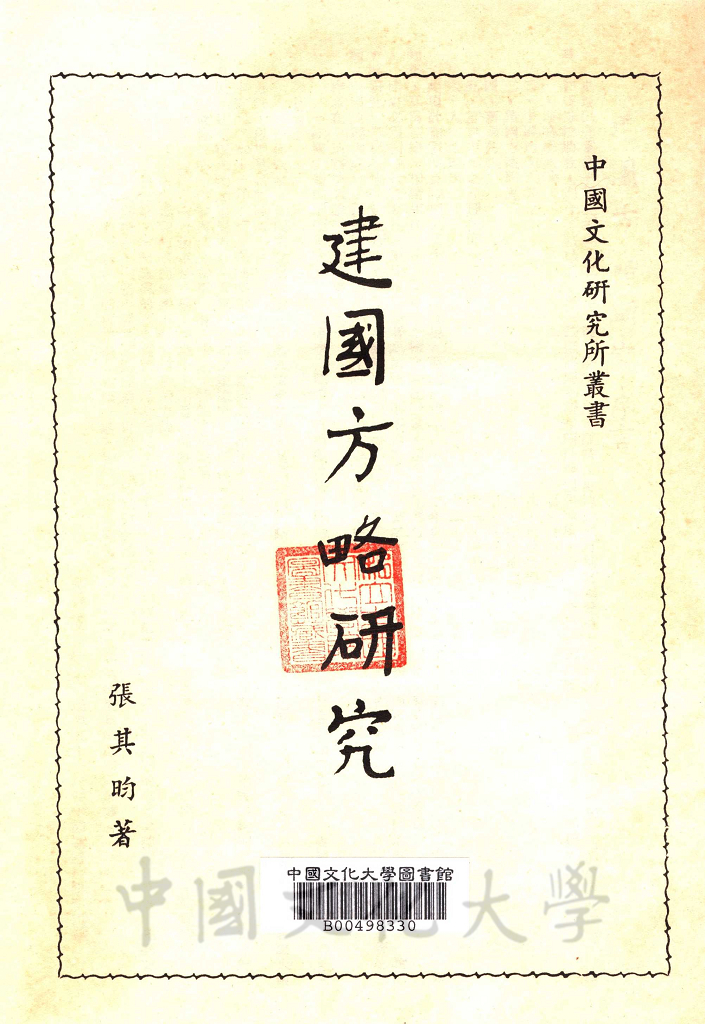 中國文化研究所叢書
建國方略研究
張其昀著
中國文化大學圖書館
B00498330
中國文化大學